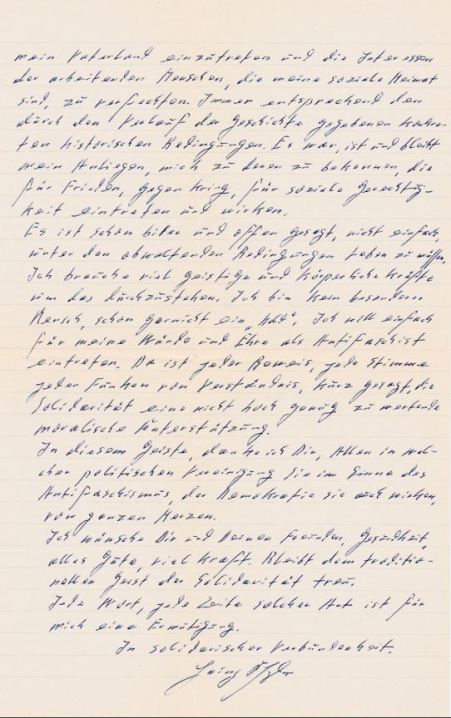 mein Vaterland einzutreten und die Interessen
der arbeitenden Menschen, die meine soziale Heimat
sind, zu verfechten. Immer entsprechend den
durch den Verlauf der Geschichte gegebenen konkre-
ten historischen Bedingungen. Es war, ist und bleibt
mein Anliegen, mich zu denen zu bekennen, die
für Frieden, gegen Krieg, für soziale Gerechtig-
keit eintreten und wirken.
Es ist schon bitter und offen gesagt, nicht einfach,
unter den obwaltenden Bedingungen leben zu müssen.
Ich brauche viel geistige und körperliche Kräfte
um das durchzustehen. Ich bin kein besonderer
Mensch, schon garnicht ein „Held". Ich will einfach
für meine Würde und Ehre als Antifaschist
eintreten. Da ist jeder Beweis, jede Stimme
jeder Funken von Verständnis, kurz gesagt, die
Solidarität eine nicht hoch genug zu wertende
moralische Unterstützung.
In diesem Geiste, danke ich Dir, Allen in wel-
cher politischen Vereinigung Sie im Sinne des
Antifaschismus, der Demokratie sie auch wirken,
von ganzen Herzen.
Ich wünsche Dir und Deinen Freunden, Gesundheit,
alles Gute, viel Kraft. Bleibt dem traditio-
nellen Geist der Solidarität treu.
Jedes Wort, jede Zeile solcher Art ist für
mich eine Ermutigung.
In solidarischer Verbundenheit.